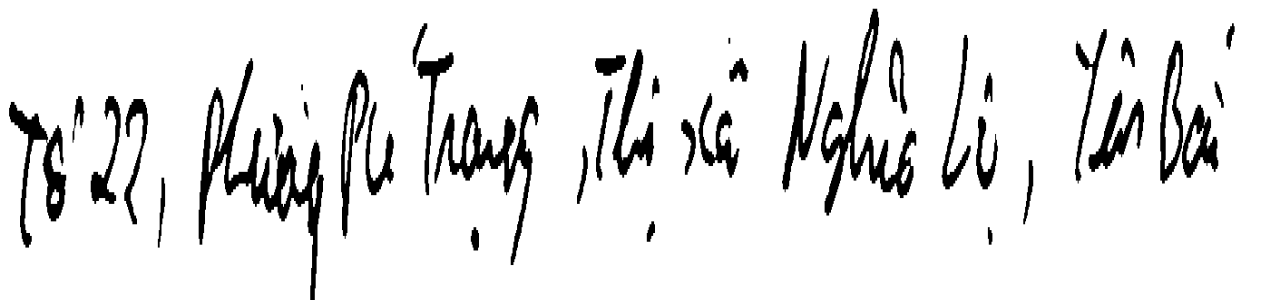 Tổ 22, Phường Pú Trạng, Thị xã Nghĩa Lộ, Yên Bái